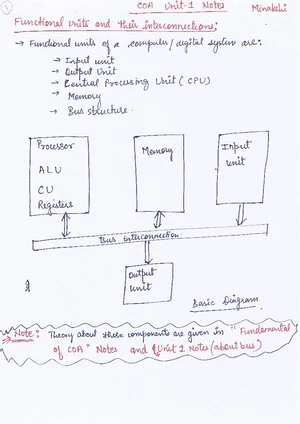 1
COA Unit-1 Notes Minakshi
Functional Units and their interconnections:
→ Functional units of a computer/digital system are:
→ Input unit
→ Output Unit
→ Central Processing Unit (CPU)
→ Memory
→ Bus structure.
Processor
ALU
CU
Registers
Memory
Input
unit
Bus interconnection
Output
unit
Basic Diagram
Note: Theory about these components are given in "Fundamental
of COA" Notes and Unit 1 Notes (about bus)